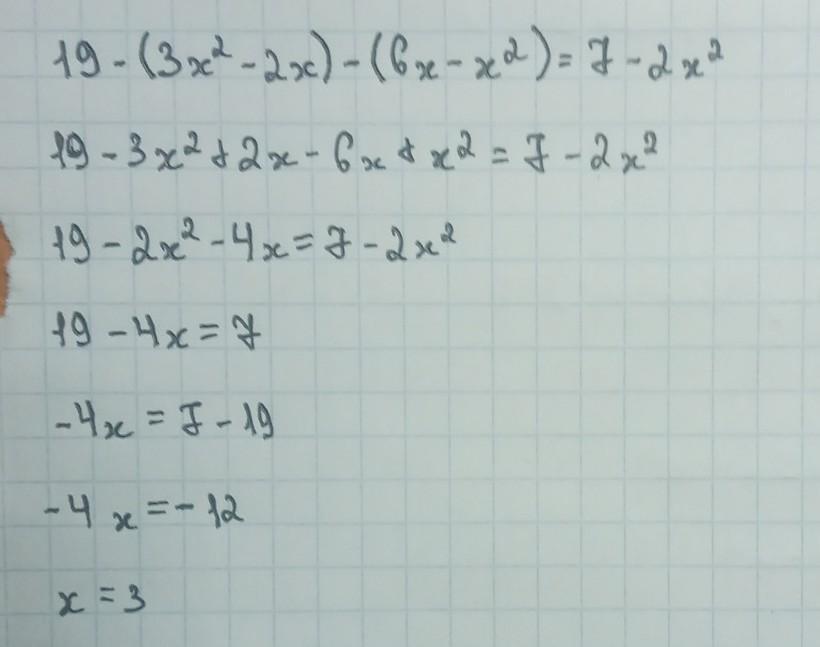 19 - (3x² - 2x) - (6x - x²) = 7 - 2x²
19 - 3x² + 2x - 6x + x² = 7 - 2x²
19 - 2x² - 4x = 7 - 2x²
19 - 4x = 7
-4x = 7 - 19
-4x = -12
x = 3